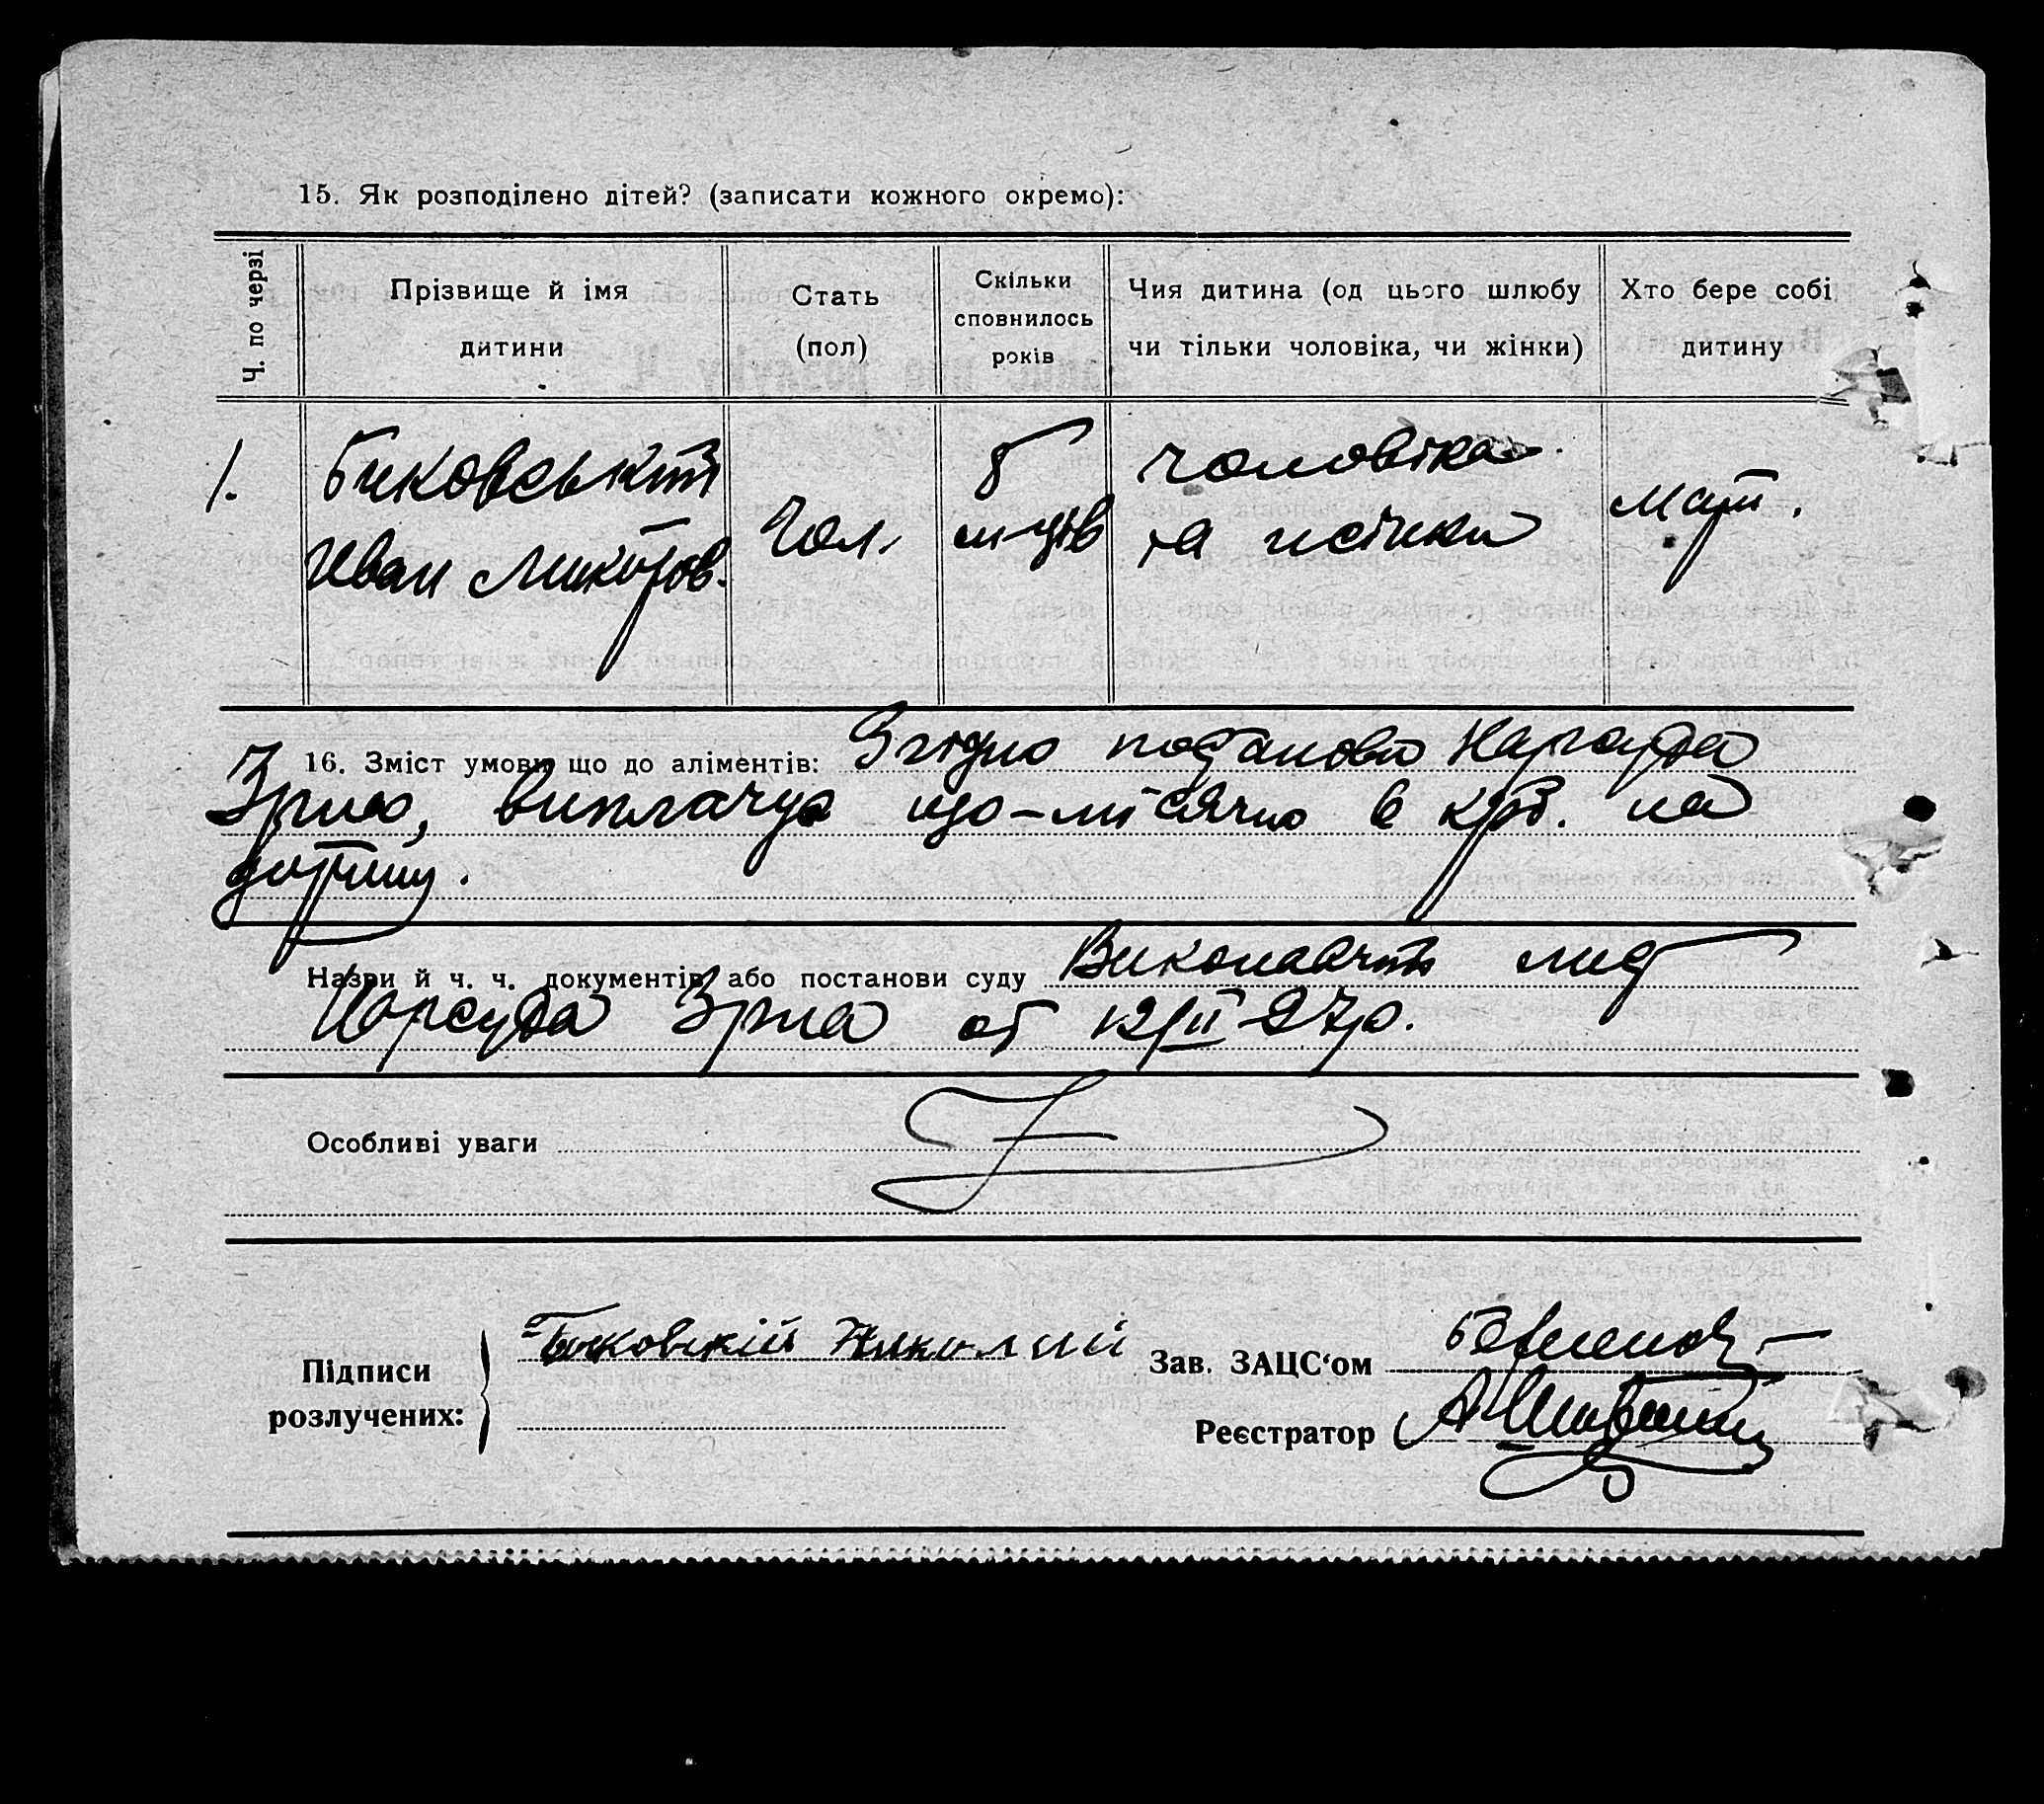 15. Як розподілено дітей? (записати кожного окремо):
Ч. по черзі
Прізвище й імя дитини
Стать (пол)
Скільки сповнилось років
Чия дитина (од цього шлюбу чи тільки чоловіка, чи жінки)
Хто бере собі дитину
1.
Биковський
Иван Микитов.
Чол.
м-ців
чоловіка
та жінки
мати.
16. Зміст умови що до аліментів: Згідно постанови Нарсуда
3 р-на, виплачує що-місячно 6 крб. на
дитину.
Назви й ч. ч. документів або постанови суду Виконавчий лист
Нарсуда 3 р-на от 12/II-27р.
Особливі уваги
Підписи розлучених:
Биковский Николай
Зав. ЗАЦС‘ом
Реєстратор